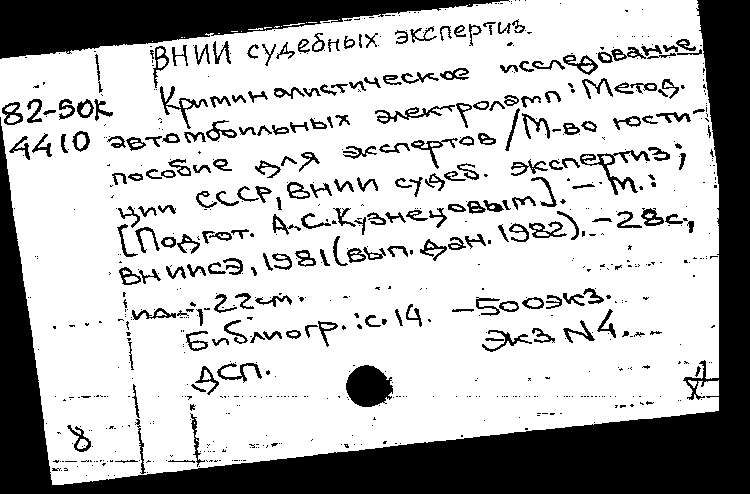 ВНИИ судебных экспертиз.
82-50к Криминалистическое исследование
4410 автомобильных электроламп: Метод.
пособие для экспертов / М-во юсти-
ции СССР, ВНИИ судеб. экспертиз;
[Подгот. А.С. Кузнецовым]. — М.:
ВНИИСЭ, 1981 (вып. дан. 1982). — 28с.,
ил.; 22см.
Библиогр.: с. 14. — 500экз.
ДСП. Экз. N 4.
8